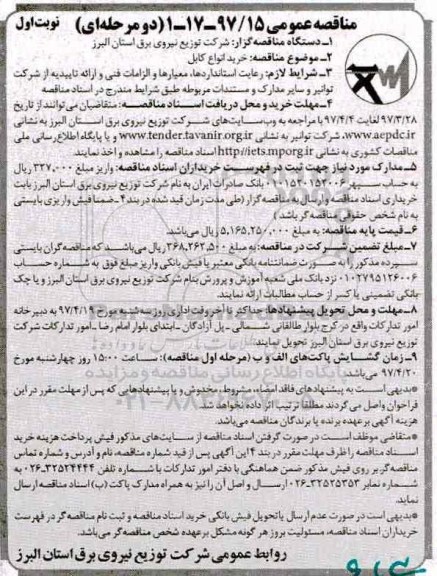 مناقصه عمومی ۹۷/۱۵-۱۷-۱ (دو مرحله‌ای) نوبت اول
۱ـ دستگاه مناقصه گزار: شرکت توزیع نیروی برق استان البرز
۲ـ موضوع مناقصه: خرید انواع کابل
۳ـ شرایط لازم: رعایت استانداردها، معیارها و الزامات فنی و ارائه تاییدیه از شرکت
توانیر و سایر مدارک و مستندات مربوطه طبق شرایط مندرج در اسناد مناقصه
۴ـ مهلت خرید و محل دریافت اسناد مناقصه: متقاضیان می توانند از تاریخ
۹۷/۳/۲۸ لغایت ۹۷/۴/۴ با مراجعه به وب‌سایت‌های شرکت توزیع نیروی برق استان البرز به نشانی
www.aepdc.ir، شرکت توانیر به نشانی www.tender.tavanir.org.ir و یا پایگاه اطلاع رسانی ملی
مناقصات کشوری به نشانی http://iets.mporg.ir اسناد مناقصه را مشاهده و اخذ نمایند
۵ـ مدارک مورد نیاز جهت ثبت در فهرست خریداران اسناد مناقصه: واریز مبلغ ۳۲۷,۰۰۰ ریال
به حساب سپهر بانک صادرات ایران به نام شرکت توزیع نیروی برق استان البرز بابت
خریداری اسناد مناقصه و ارسال به مناقصه گزار (طی مدت زمان قید شده در بند ۴ـ ضمنا فیش واریزی بایستی
به نام شخص حقوقی مناقصه گر باشد)
۶ـ قیمت پایه مناقصه: به مبلغ ۵,۱۶۵,۲۵۰,۰۰۰ ریال می باشد
۷ـ مبلغ تضمین شرکت در مناقصه: به مبلغ ۲۶۸,۲۶۲,۵۰۰ ریال می باشد که مناقصه گران بایستی
سپرده مذکور را به صورت ضمانتنامه بانکی معتبر یا فیش بانکی واریز مبلغ فوق به شماره حساب
۰۱۰۲۷۹۵۱۲۶۰۰۶ نزد بانک ملی شعبه آموزش و پرورش بنام شرکت توزیع نیروی برق استان البرز و یا چک
بانکی تضمینی یا کسر از حساب مطالبات ارائه نمایند.
۸ـ مهلت و محل تحویل پیشنهادها: حداکثر تا آخر وقت اداری روز سه شنبه مورخ ۹۷/۴/۱۹ به دبیرخانه
امور تدارکات واقع در کرج بلوار طالقانی شمالی ـ پل آزادگان ـ ابتدای بلوار امام رضا ـ امور تدارکات شرکت
توزیع نیروی برق استان البرز تحویل نمایند.
۹ـ زمان گشایش پاکت‌های الف و ب (مرحله اول مناقصه): ساعت ۱۵:۰۰ روز چهارشنبه مورخ
۹۷/۴/۲۰ می باشد
*بدیهی است به پیشنهادهای فاقد امضاء، مشروط، مخدوش و یا پیشنهادهایی که پس از مهلت مقرر در این
فراخوان واصل می گردند مطلقا ترتیب اثر داده نخواهد شد.
هزینه آگهی بر عهده برنده یا برندگان مناقصه می باشد.
*متقاضی موظف است در صورت گرفتن اسناد مناقصه از سایت‌های مذکور فیش پرداخت هزینه خرید
اسناد مناقصه را ظرف مهلت مقرر در بند ۴ این آگهی پس از قید شماره مناقصه، نام و آدرس و شماره تماس
مناقصه گر بر روی فیش مذکور ضمن هماهنگی با دفتر امور تدارکات با شماره تلفن ۳۲۵۲۴۴۴۴-۰۲۶ به
شماره نمابر ۳۲۵۲۵۳۵۳-۰۲۶ ارسال و اصل آن را نیز به همراه مدارک پاکت (ب) اسناد مناقصه ارسال
نماید.
*بدیهی است در صورت عدم ارسال یا تحویل فیش بانکی خرید اسناد مناقصه و ثبت نام مناقصه گر در فهرست
خریداران اسناد مناقصه، مسئولیت بروز هر گونه مشکل بر عهده شخص مناقصه گر می باشد.
روابط عمومی شرکت توزیع نیروی برق استان البرز